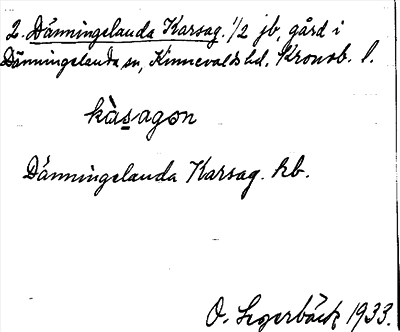 2. Dänningelanda Karsag. 1/2 jb, gård i
Dänningelanda sn, Kinnevalds hd. Kronob. l.
kàsagon
Dänningelanda Karsag. hb.
O. Segerbäck 1933.